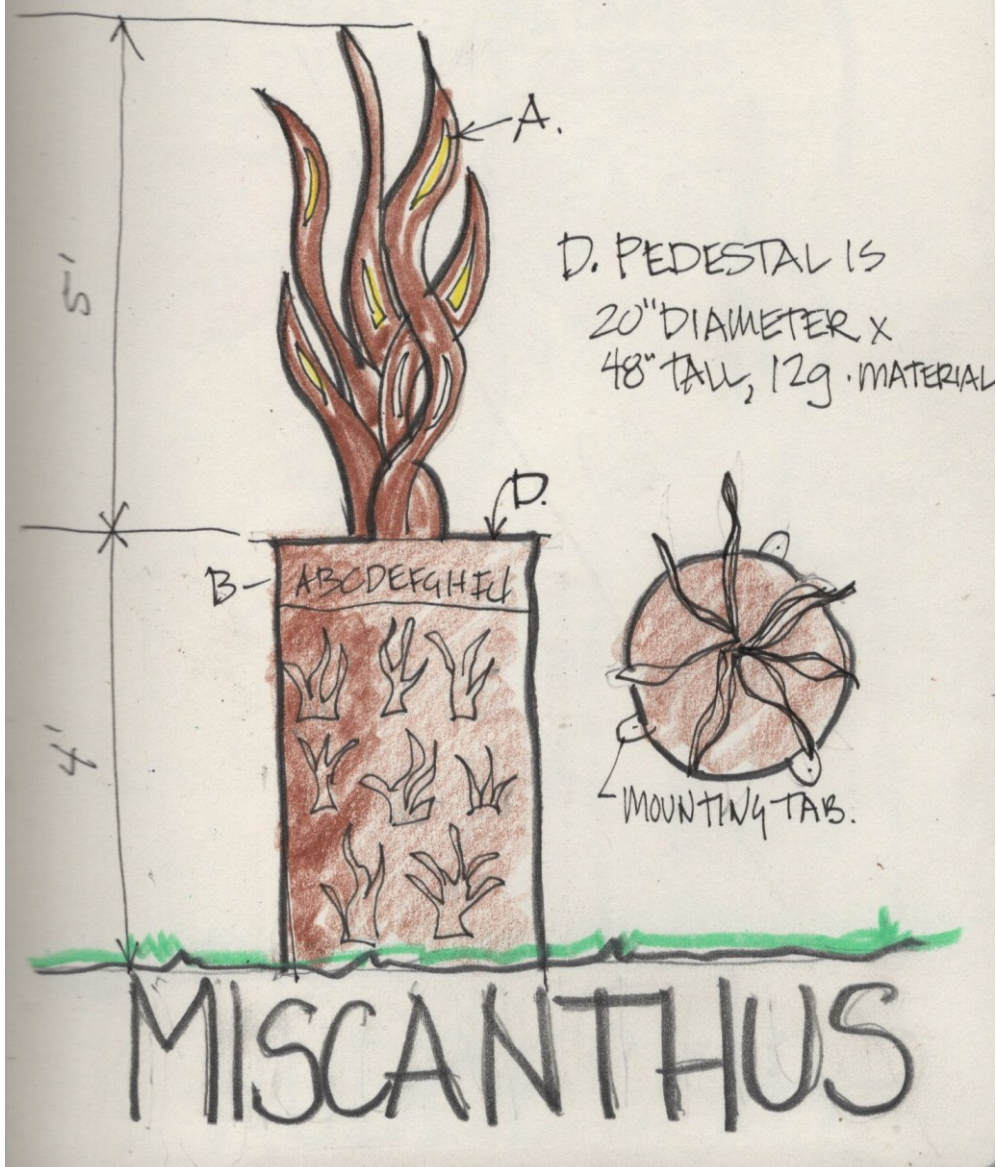 5'
A.
D. PEDESTAL IS
20" DIAMETER X
48" TALL, 12g. MATERIAL
D.
B-
4'
MOUNTING TAB.
MISCANTHUS